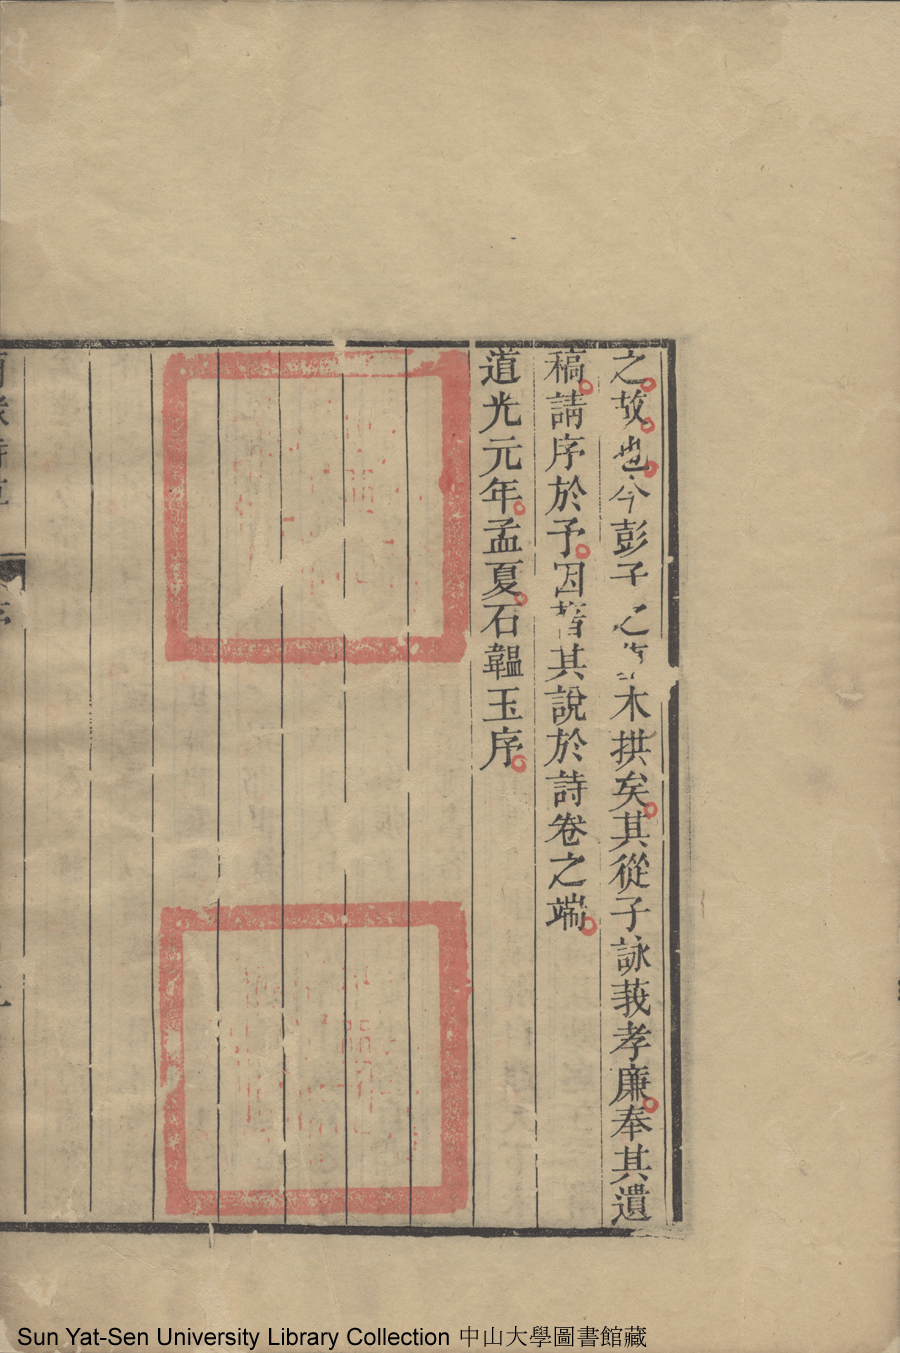 之故也今彭子之 木拱矣其從子詠莪孝廉奉其遺
稿請序於予因著其說於詩卷之端
道光元年孟夏石韞玉序
Sun Yat-Sen University Library Collection 中山大學圖書館藏